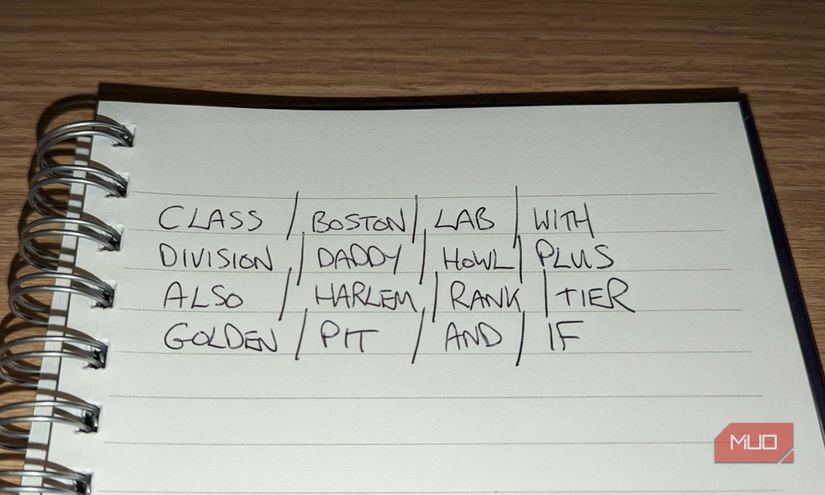 CLASS / BOSTON / LAB / WITH
DIVISION / DADDY / HOWL / PLUS
ALSO / HARLEM / RANK / TIER
GOLDEN / PIT / AND / IF
MUO